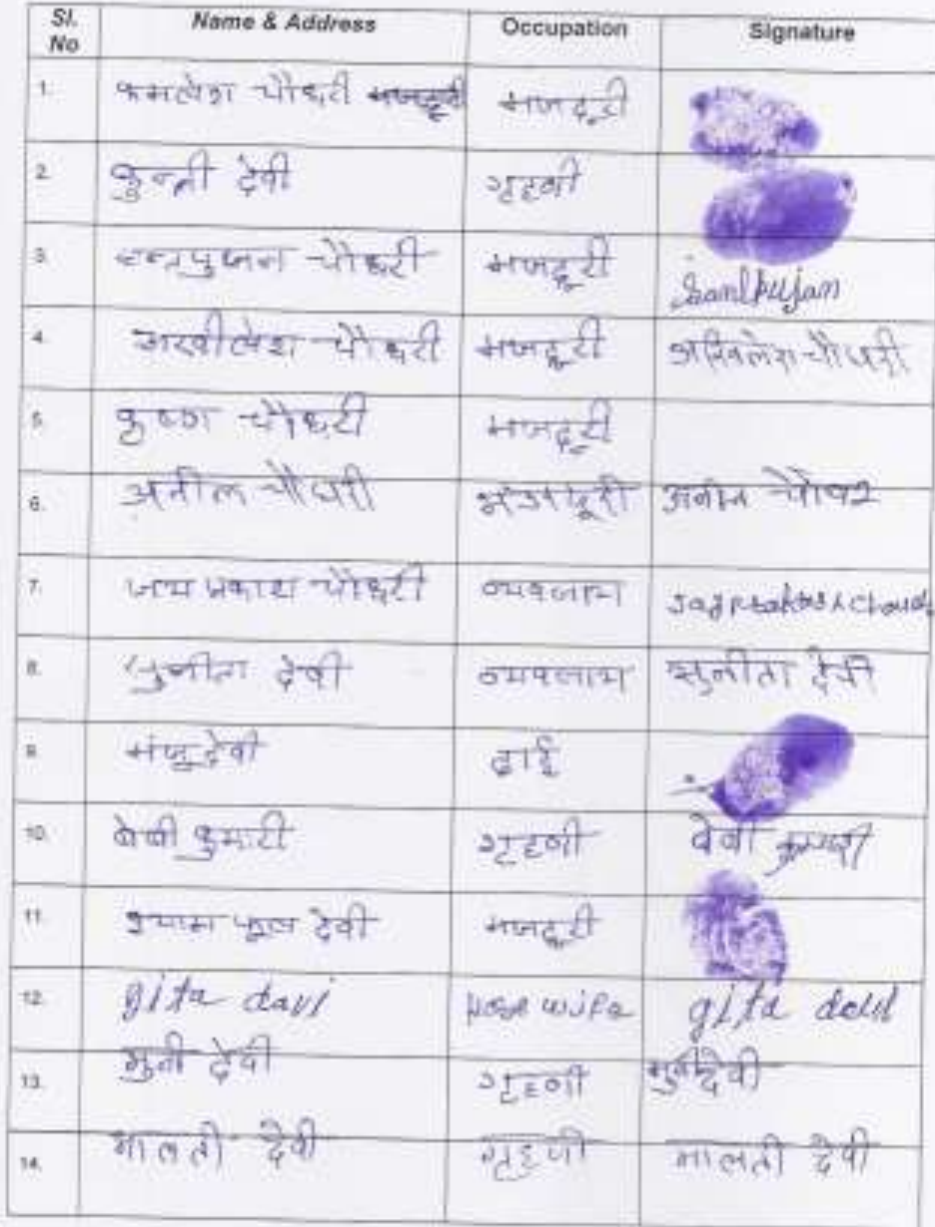 Sl. No Name & Address Occupation Signature
1. कमलेश चौधरी मजदूरी मजदूरी
2. कुन्ती देवी गृहणी
3. चौधरी मजदूरी
4. अखीलेश चौधरी मजदूरी अखिलेश चौधरी
5. कृष्णा चौधरी मजदूरी
6. अनील चौधरी
7. जय प्रकाश चौधरी व्यवसाय
8. सुनीता देवी व्यवसाय सुनीता देवी
9. मंजू देवी दाई
10. बेबी कुमारी गृहणी बेबी कुमारी
11. श्याम फुल देवी मजदूरी
12. gita davi gita
13. मुनी देवी गृहणी मुनी देवी
14. मालती देवी गृहणी मालती देवी